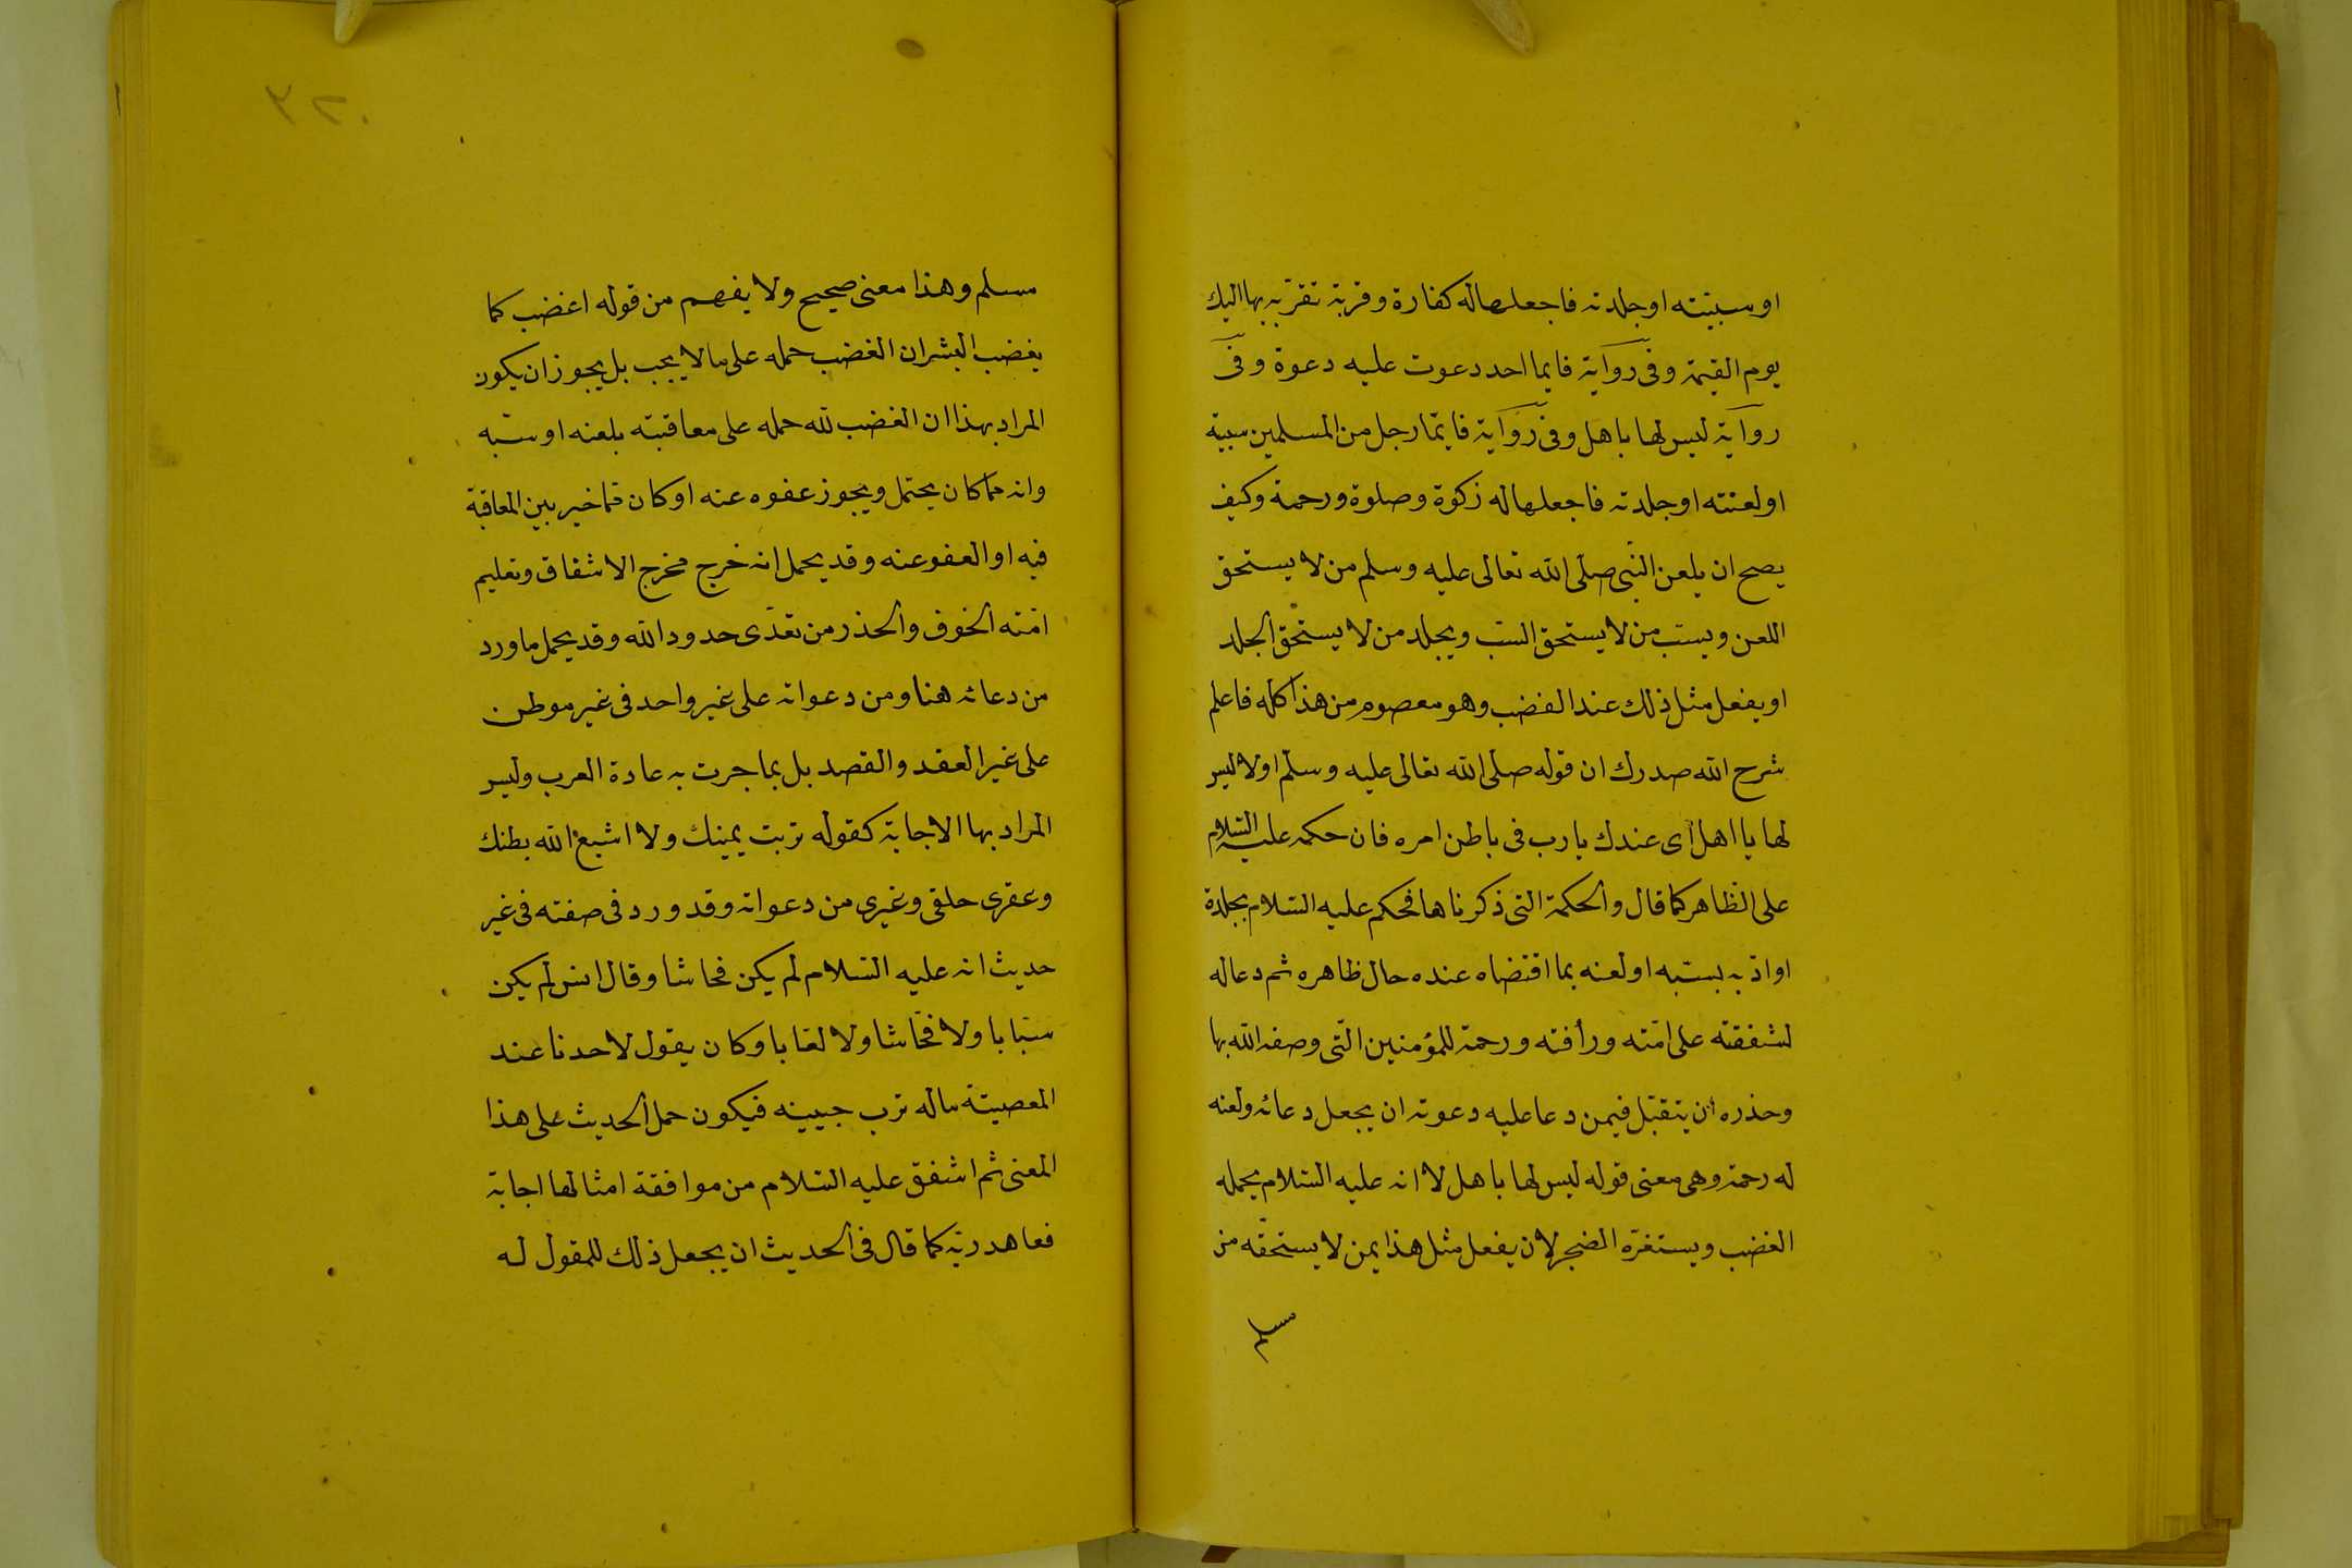 او سببته او جلدته فاجعلها له كفارة وقربة تقربه بها اليك
يوم القيمة وفى رواية فايما احد دعوت عليه دعوة وفى
رواية ليس لها باهل وفى رواية فايّما رجل من المسلمين سببته
او لعنته او جلدته فاجعلها له زكوة وصلوة ورحمة وكيف
يصح ان يلعن النّبى صلى الله تعالى عليه وسلم من لا يستحق
اللعن ويسبّ من لا يستحق السّب ويجلد من لا يستحق الجلد
او يفعل مثل ذلك عند الغضب وهو معصوم من هذا كله فاعلم
شرح الله صدرك ان قوله صلى الله تعالى عليه وسلم اولا ليس
لها يا اهل اى عندك يا رب فى باطن امره فان حكمه عليه السّلام
على الظاهر كما قال والحكمة التى ذكرناها فحكم عليه السّلام بجلدة
او ادّبه بسبّه او لعنه بما اقتضاه عنده حال ظاهره ثم دعا له
لشفقته على امّته ورأفته ورحمة للمؤمنين الّتى وصفه الله بها
وحذره ان يتقبّل فيمن دعا عليه دعوته ان يجعل دعائه ولعنه
له رحمة وهى معنى قوله ليس لها باهل لا انه عليه السّلام يحمله
الغضب ويستفزّه الضجر لان يفعل مثل هذا بمن لا يستحقّه من
مسلم
٣٢٠
مسلم وهذا معنى صحيح ولا يفهم من قوله اغضب كما
يغضب البشر ان الغضب حمله على ما لا يجب بل يجوز ان يكون
المراد بهذا ان الغضب لله حمله على معاقبته بلعنه او سبّه
وانه مما كان يحتمل ويجوز عفوه عنه او كان مما خير بين المعاقبة
فيه او العفو عنه وقد يحمل انه خرج مخرج الاشفاق وتعليم
امّته الخوف والحذر من تعدّى حدود الله وقد يحمل ما ورد
من دعائه هنا ومن دعواته على غير واحد فى غير موطن
على غير العقد والقصد بل بما جرت به عادة العرب وليس
المراد بها الاجابة كقوله تربت يمينك ولا اشبع الله بطنك
وعقرى حلقى وغيرى من دعواته وقد ورد فى صفته فى غير
حديث انه عليه السّلام لم يكن فحاشا وقال انس لم يكن
سبّابا ولا فحّاشا ولا لعّابا وكان يقول لاحدنا عند
المعصيتة ماله ترب جبينه فيكون حمل الحديث على هذا
المعنى ثم اشفق عليه السّلام من موافقة امثالها اجابة
فعاهد ربّه كما قال فى الحديث ان يجعل ذلك للمقول له